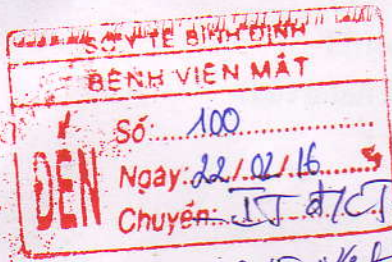 SỞ Y TẾ BÌNH ĐỊNH
BỆNH VIỆN MẮT
ĐẾN
Số: 100
Ngày: 22/02/16
Chuyển: IT